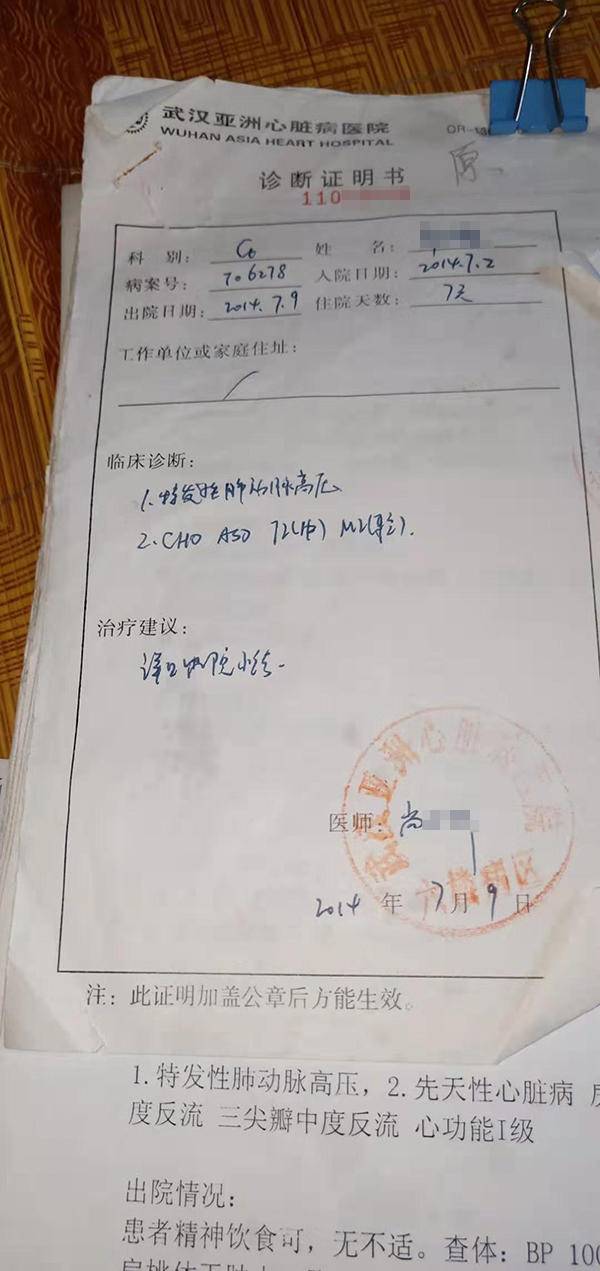 武汉亚洲心脏病医院
WUHAN ASIA HEART HOSPITAL
QR-
原
诊断证明书
110
科 别: C6 姓 名:
病案号: 706278 入院日期: 2014.7.2
出院日期: 2014.7.9 住院天数: 7天
工作单位或家庭住址:
临床诊断:
1.特发性肺动脉高压
2.CHD ASD TI(中) MI(轻).
治疗建议:
详见出院小结.
医师: 尚
2014 年 7 月 9 日
注: 此证明加盖公章后方能生效。
1.特发性肺动脉高压, 2.先天性心脏病
度反流 三尖瓣中度反流 心功能I级
出院情况:
患者精神饮食可, 无不适。查体: BP 100